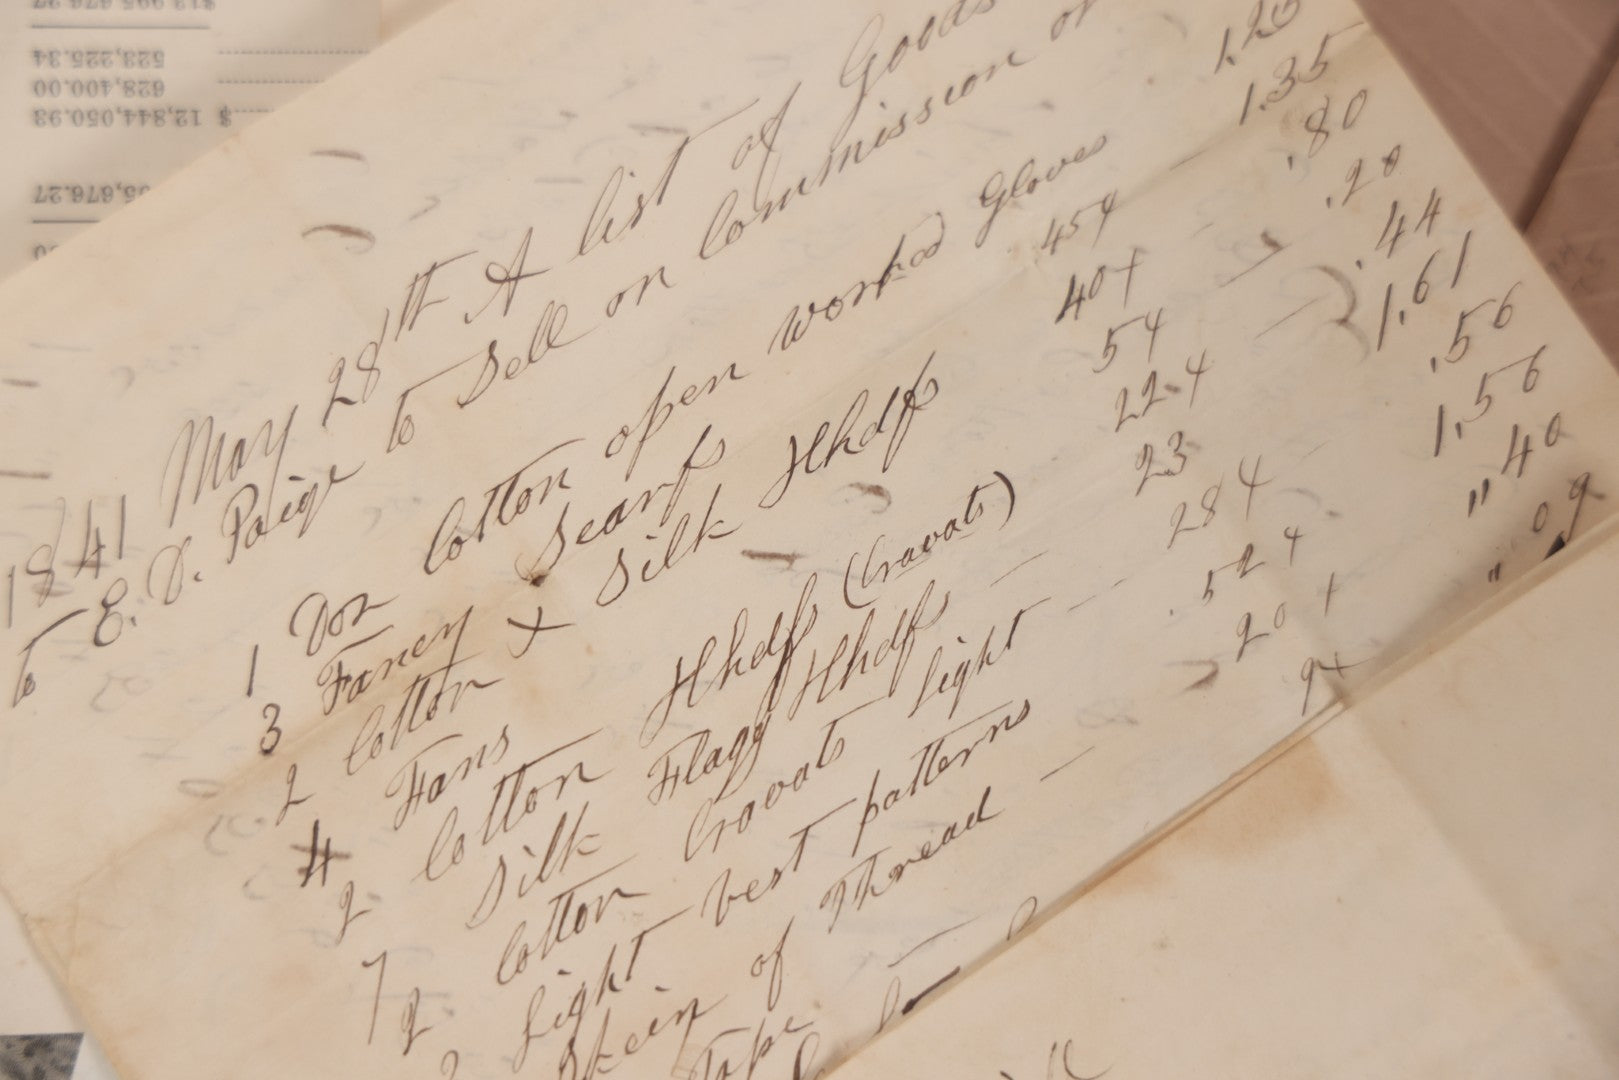 $13,995,676.27
523,225.34
628,400.00
$ 12,844,050.93
1841 May 28th A list of Goods
to E. D. Paige to Sell on Commission or
1 Doz Cotton open worked Gloves 1.25
3 Fancy Scarfs 45 1.35
2 Cotton + Silk Hhdfs 40 .80
4 Fans 5 .20
2 Cotton Hhdfs (Cravats) 22 .44
7 Silk Flagg Hhdfs 23 1.61
2 Cotton Cravats light 28 .56
3 Light vest patterns .52 1.56
Skein of Thread 20 " 40
Tape 9 " 09